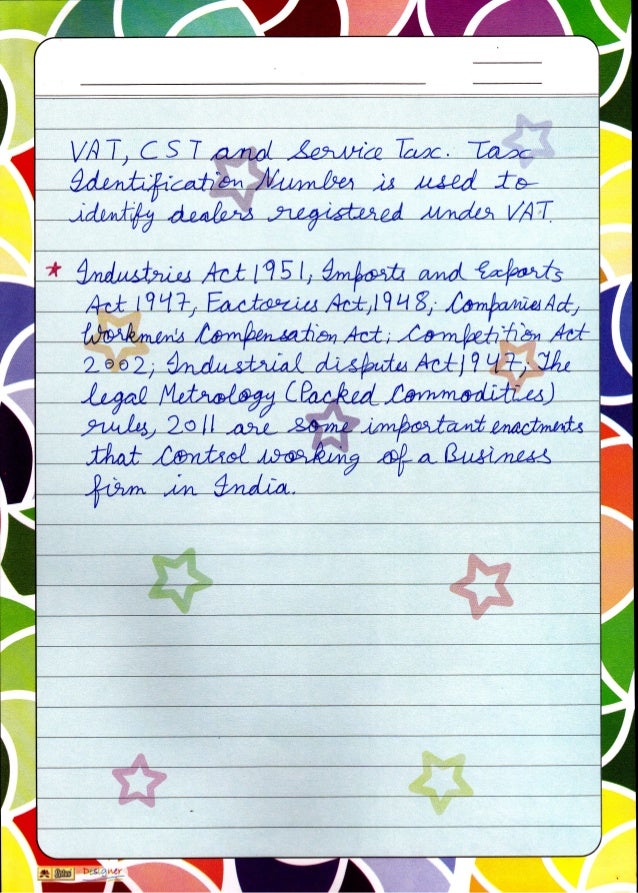 VAT, CST and Service Tax. Tax
Identification Number is used to
identify dealers registered under VAT.
* Industries Act 1951, Imports and Exports
Act 1947, Factories Act, 1948; Companies Act,
Workmen's Compensation Act; Competition Act
2002; Industrial disputes Act 1947; The
legal Metrology (Packed Commodities)
rules, 2011 are some important enactments
that Control working of a Business
firm in India.
Designer